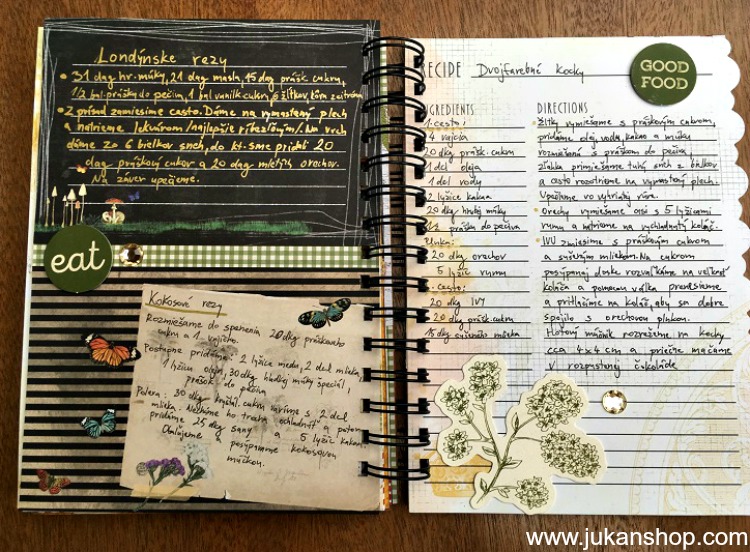 Londýnske rezy
• 31 dag hr. múky, 21 dag masla, 15 dag prášk. cukru,
1/2 bal. prášku do pečiva, 1 bal vanilk. cukru, 6 žĺtkov, kôra z citróna
• Z prísad zamiesime cesto. Dáme na vymastený plech
a natrieme lekvárom /najlepšie ríbezľovým/. Na vrch
dáme zo 6 bielkov sneh, do kt. sme pridali 20
dag práškový cukor a 20 dag mletých orechov.
Na záver upečieme.
eat
Kokosové rezy
Rozmiešame do spenenia 20 dkg práškového
cukru a 1 vajíčko.
Postupne pridáme: 2 lyžice medu, 2 dcl mlieka,
1 lyžicu oleja, 30 dkg hladkej múky špeciál
prášok do pečiva
Poleva: 30 dkg kryštál. cukru zavrieme s 2 dcl
mlieka. Necháme ho trocha ochladnúť a potom
pridáme 25 dkg sany a 5 lyžíc kakaa.
Obaľujeme a posypeme kokosovou
múčkou.
RECIPE Dvojfarebné kocky
GOOD
FOOD
INGREDIENTS
1. cesto:
4 vajcia
20 dkg prášk. cukru
1 dcl oleja
1 dcl vody
2 lyžice kakaa
20 dkg hladkej múky
1/2 prášku do pečiva
Plnka:
20 dkg orechov
5 lyžíc rumu
2. cesto:
20 dkg IVY
20 dkg prášk. cukru
15 dkg sušeného mlieka
DIRECTIONS
• Žĺtky vymiešame s práškovým cukrom,
pridáme olej, vodu, kakao a múku
rozmiešanú s práškom do pečiva,
zľahka primiešame tuhý sneh z bielkov
a cesto rozotrieme na vymastený plech.
Upečieme vo vyhriatej rúre.
• Orechy vymiešame asi s 5 lyžicami
rumu a natrieme na vychladnutý koláč.
• IVU zmiesime s práškovým cukrom
a sušeným mliekom. Na cukrom
posypanej doske rozvaľkáme na veľkosť
koláča a pomocou valka prenesieme
a pritlačíme na koláč, aby sa dobre
spojilo s orechovou plnkou.
Hotový múčnik rozrežeme na kocky
cca 4x4 cm a priečne máčame
v rozpustenej čokoláde
www.jukanshop.com